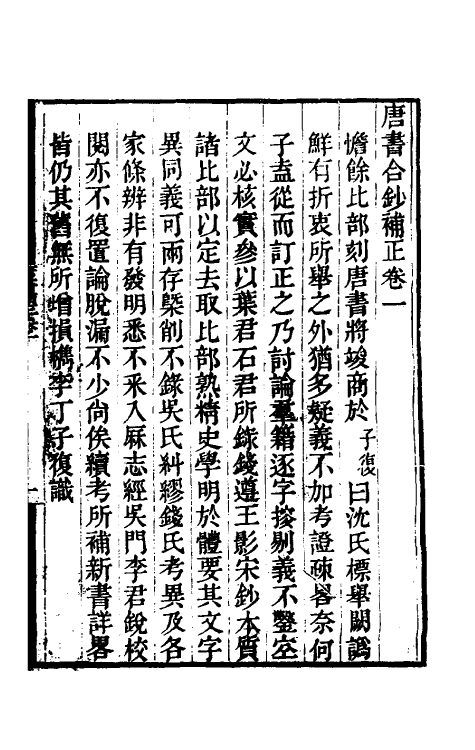 唐書合鈔補正卷一
憺餘比部刻唐書將竣商於子復曰沈氏標舉闕譌
鮮有折衷所舉之外猶多疑義不加考證疎畧奈何
子盍從而訂正之乃討論羣籍逐字挍剔義不鑿空
文必核實參以葉君石君所錄錢遵王影宋鈔本質
諸比部以定去取比部熟精史學明於體要其文字
異同義可兩存槩削不錄吳氏糾繆錢氏考異及各
家條辨非有發明悉不采入厤志經吳門李君銳校
閱亦不復置論脫漏不少尚俟續考所補新書詳畧
皆仍其舊無所增損檇李丁子復識